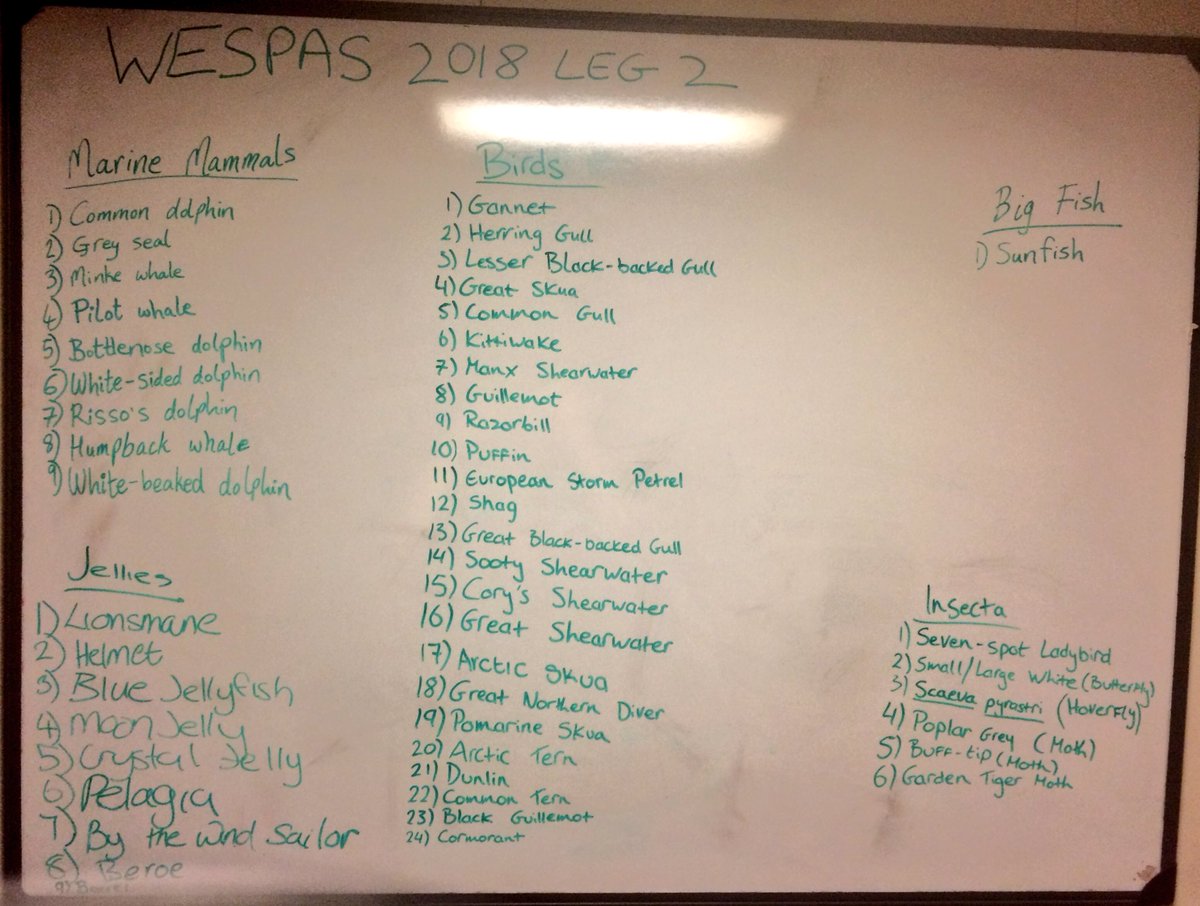 WESPAS 2018 LEG 2
Marine Mammals
1) Common dolphin
2) Grey seal
3) Minke whale
4) Pilot whale
5) Bottlenose dolphin
6) White-sided dolphin
7) Risso's dolphin
8) Humpback whale
9) White-beaked dolphin
Jellies
1) Lionsmane
2) Helmet
3) Blue Jellyfish
4) Moon Jelly
5) Crystal Jelly
6) Pelagia
7) By the wind Sailor
8) Beroe
9)
Birds
1) Gannet
2) Herring Gull
3) Lesser Black-backed Gull
4) Great Skua
5) Common Gull
6) Kittiwake
7) Manx Shearwater
8) Guillemot
9) Razorbill
10) Puffin
11) European Storm Petrel
12) Shag
13) Great Black-backed Gull
14) Sooty Shearwater
15) Cory's Shearwater
16) Great Shearwater
17) Arctic Skua
18) Great Northern Diver
19) Pomarine Skua
20) Arctic Tern
21) Dunlin
22) Common Tern
23) Black Guillemot
24) Cormorant
Big Fish
1) Sunfish
Insecta
1) Seven-spot Ladybird
2) Small/Large White (Butterfly)
3) Scaeva pyrastri (Hoverfly)
4) Poplar Grey (Moth)
5) Buff-tip (Moth)
6) Garden Tiger Moth